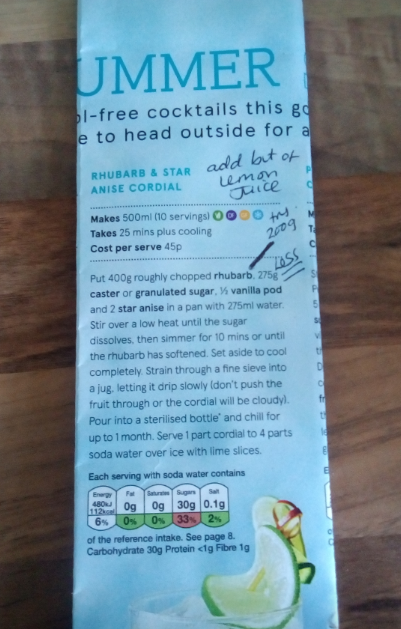 UMMER
ol-free cocktails this go
e to head outside for a
RHUBARB & STAR
ANISE CORDIAL
add bit of
Lemon
Juice
Makes 500ml (10 servings)
Takes 25 mins plus cooling
Cost per serve 45p
try
200g
LESS
Put 400g roughly chopped rhubarb, 275g
caster or granulated sugar, ½ vanilla pod
and 2 star anise in a pan with 275ml water.
Stir over a low heat until the sugar
dissolves, then simmer for 10 mins or until
the rhubarb has softened. Set aside to cool
completely. Strain through a fine sieve into
a jug, letting it drip slowly (don't push the
fruit through or the cordial will be cloudy).
Pour into a sterilised bottle* and chill for
up to 1 month. Serve 1 part cordial to 4 parts
soda water over ice with lime slices.
Each serving with soda water contains
Energy Fat Saturates Sugars Salt
480kJ
112kcal 0g 0g 30g 0.1g
6% 0% 0% 33% 2%
of the reference intake. See page 8.
Carbohydrate 30g Protein <1g Fibre 1g